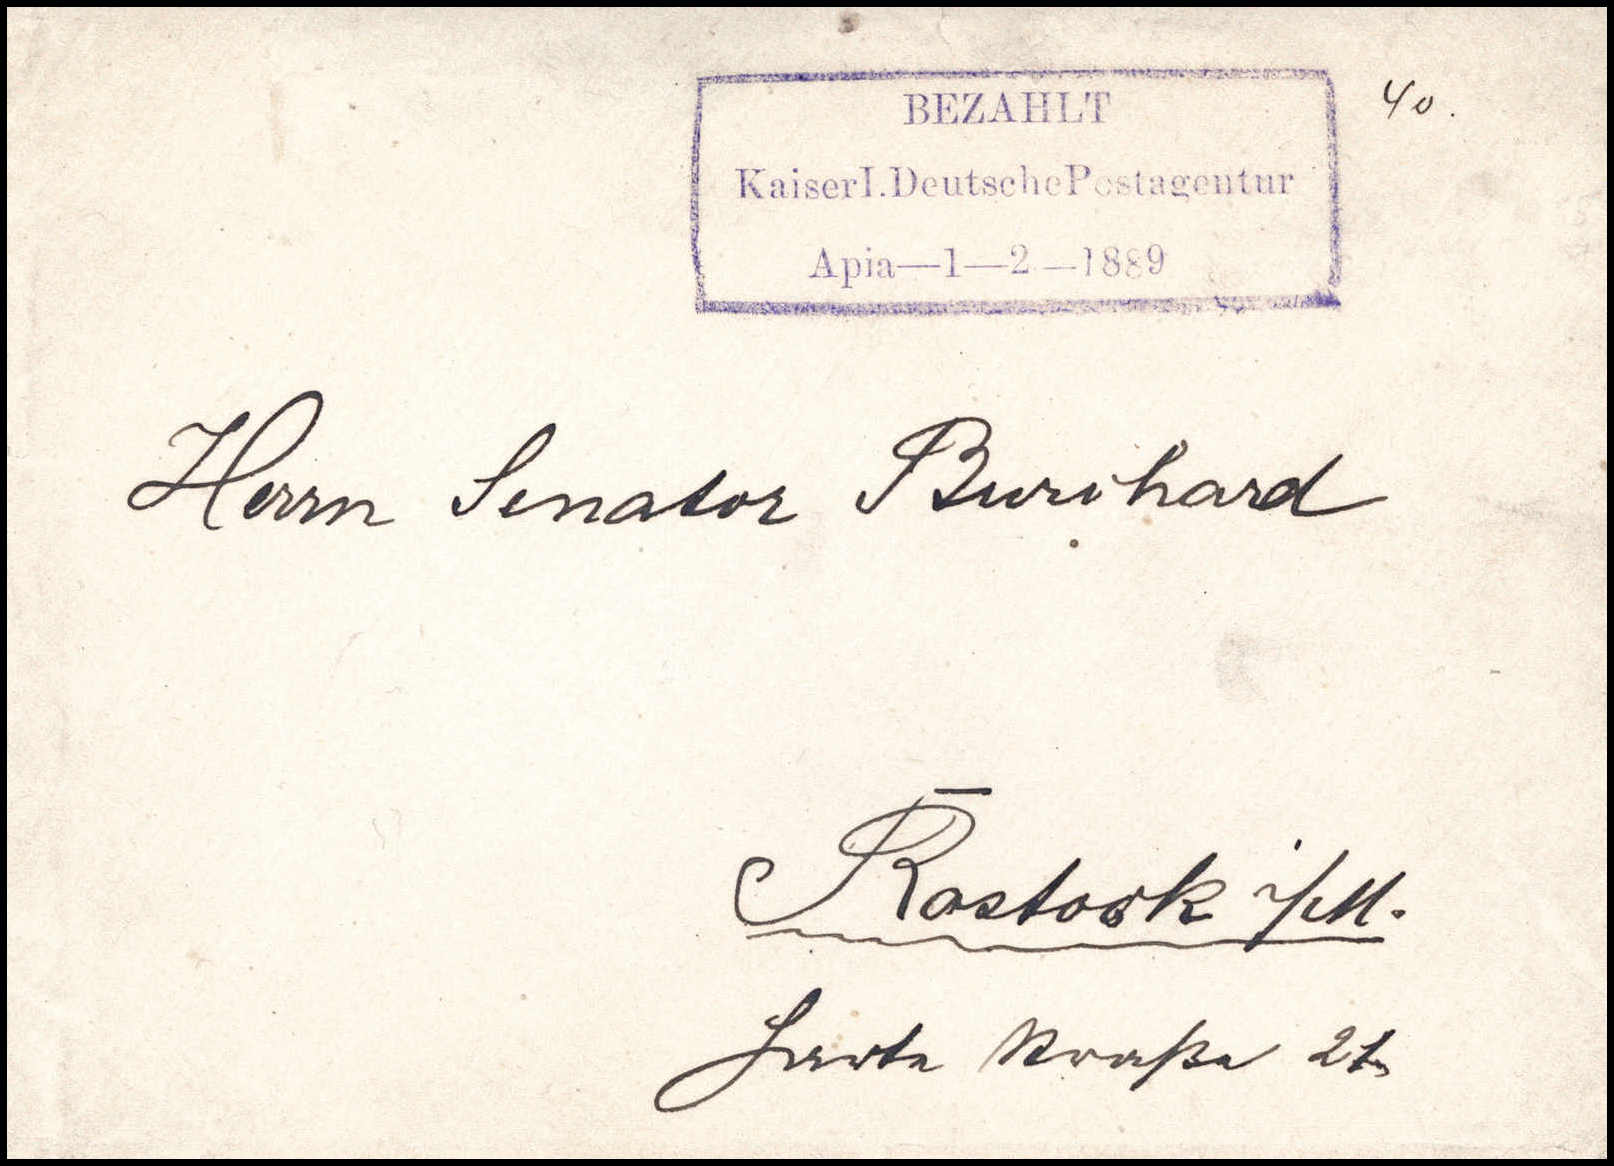 BEZAHLT
40.
Kaiserl. Deutsche Postagentur
Apia—1—2—1889
Herrn Senator Burchard
Rostock i/M.
Straße